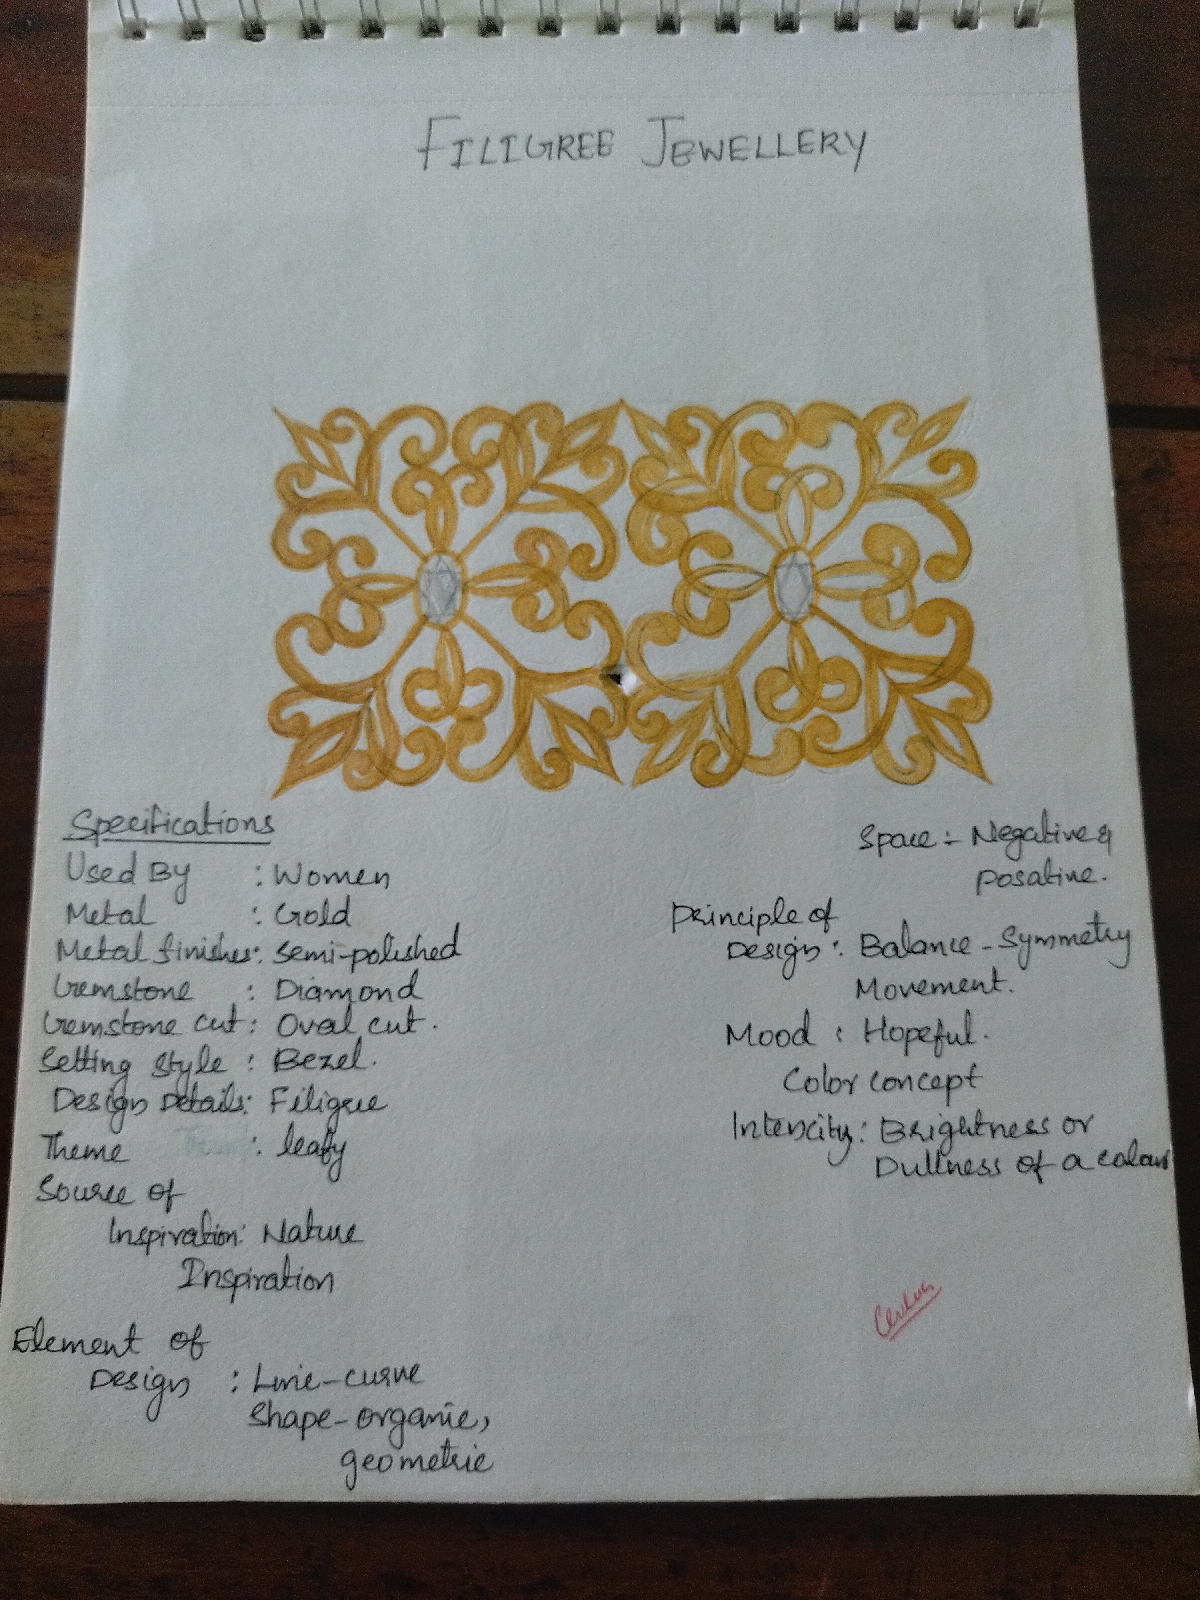 FILIGREE JEWELLERY
Specifications
Used By : Women
Metal : Gold
Metal finishes: Semi-polished
Gemstone : Diamond
Gemstone cut : Oval cut.
Setting style : Bezel.
Design Details: Filigree
Theme : leafy
Source of
Inspiration: Nature
Inspiration
Element of
Design : Line-curve
Shape-organic,
geometric
Space :- Negative &
Posative.
Principle of
Design : Balance - Symmetry
Movement.
Mood : Hopeful.
Color concept
Intencity : Brightness or
Dullness of a colour